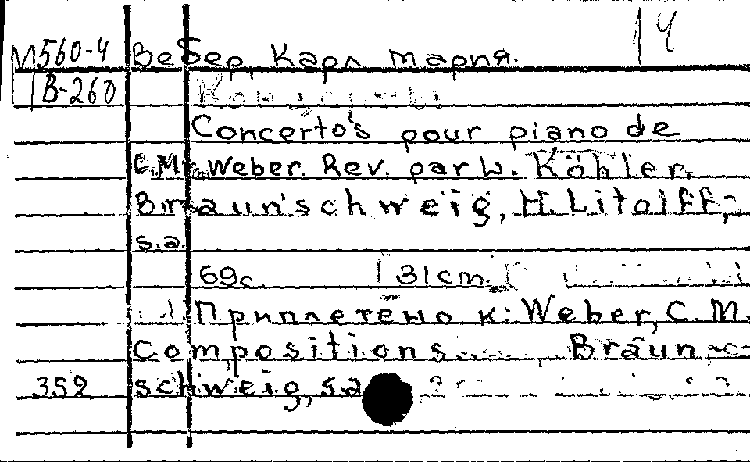 14
М560-4 Вебер, Карл Мария.
В-260
Concerto's pour piano de
C.M. Weber. Rev. par L. Köhler.
Braunschweig, H. Litolff,
s.a.
69с. 31cm.
Приплетено к: Weber, C.M.
Compositions Braun-
352 schweig, s.a